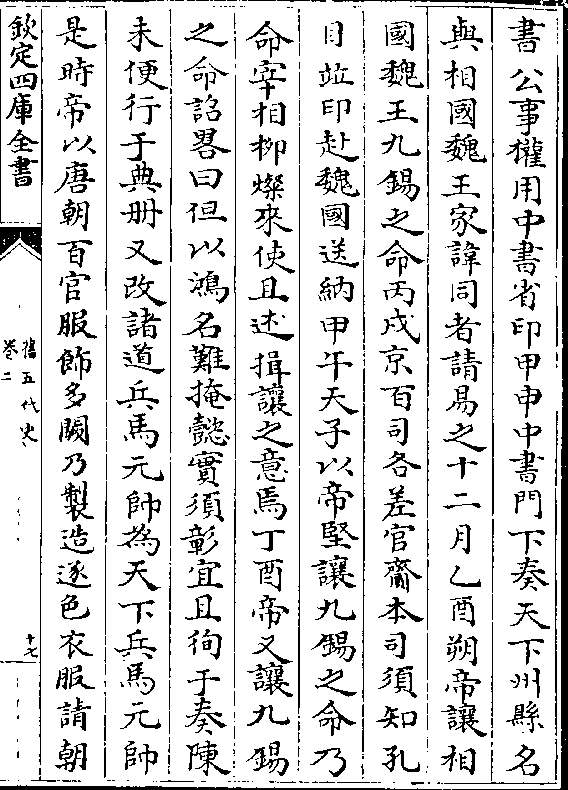 書公事權用中書省印甲申中書門下奏天下州縣名
與相國魏王家諱同者請易之十二月乙酉朔帝讓相
國魏王九錫之命丙戌京百司各差官齎本司須知孔
目並印赴魏國送納甲午天子以帝堅讓九錫之命乃
命宰相柳燦來使且述揖讓之意焉丁酉帝又讓九錫
之命詔畧曰但以鴻名難掩懿實須彰宜且徇于奏陳
未便行于典册又改諸道兵馬元帥為天下兵馬元帥
是時帝以唐朝百官服飾多闕乃製造逐色衣服請朝
欽定四庫全書
舊五代史
卷二
十七